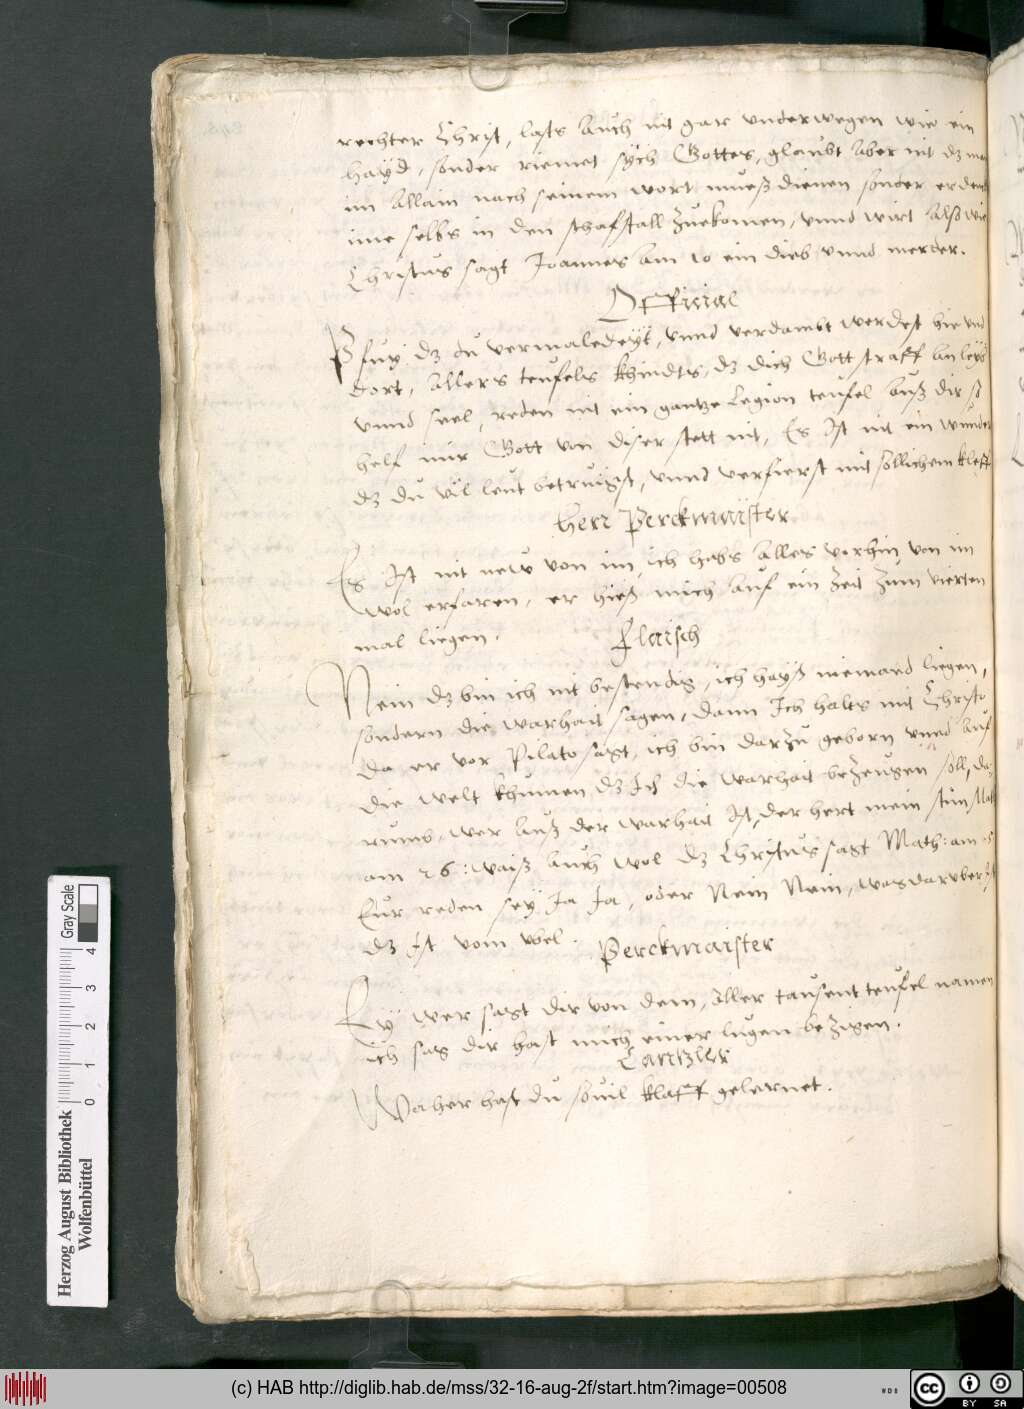 rechter Christ, lasts auch nit gar underwegen wie ein
hayd, sonder riemet sych Gottes, glaubt aber nit dz man
im allain nach seinem wort mueß dienen sonder er denckt
ime selbs in den schafstall zuekomen, unnd wirt alß wie
Christus sagt Joannes am 10 ein dieb unnd merder.
Official
Pfuy dz du vermaledeyt, unnd verdambt werdest hie und
dort, allers teufels khindts, dz dich Gott straff an leyb
unnd seel, reden nit ein gantze Legion teufel auß dir so
helf mir Gott von diser stett nit, Es Ist nit ein wunder
dz du vyl leut betruigst, unnd verfierst mit sollichem kleff
Herr Perckmayster
Es Ist nit new von im, ich habs alles vorhin von im
wol erfaren, er hieß mich auf ein zeit zum vierten
mal liegen.
Flaisch
Nein dz bin ich nit bestendig, ich hayß niemand liegen,
sondern die warhait sagen, dann Ich halts mit Christo
da er vor Pilato sagt, ich bin darzu geborn unnd auf
die welt khumen dz Ich die warhait bezeugen soll, da,
rumb, wer auß der warhait Ist, der hert mein stim Math
am 26: waiß auch wol dz Christus sagt Math: am 5
Eur reden sey Ja Ja, oder Nein Nein, was daruber ist
dz Ist vom ubel.
Perckmaister
Ey wer sagt dir von dem, aller tausent teufel namen
ich sag dir hast mich einer lugen bezigen.
Cantzler
Waher hast du sovil klaff gelernet.
Herzog August Bibliothek
Wolfenbüttel
0 1 2 3 4
Gray Scale
(c) HAB http://diglib.hab.de/mss/32-16-aug-2f/start.htm?image=00508
WDB
cc BY SA